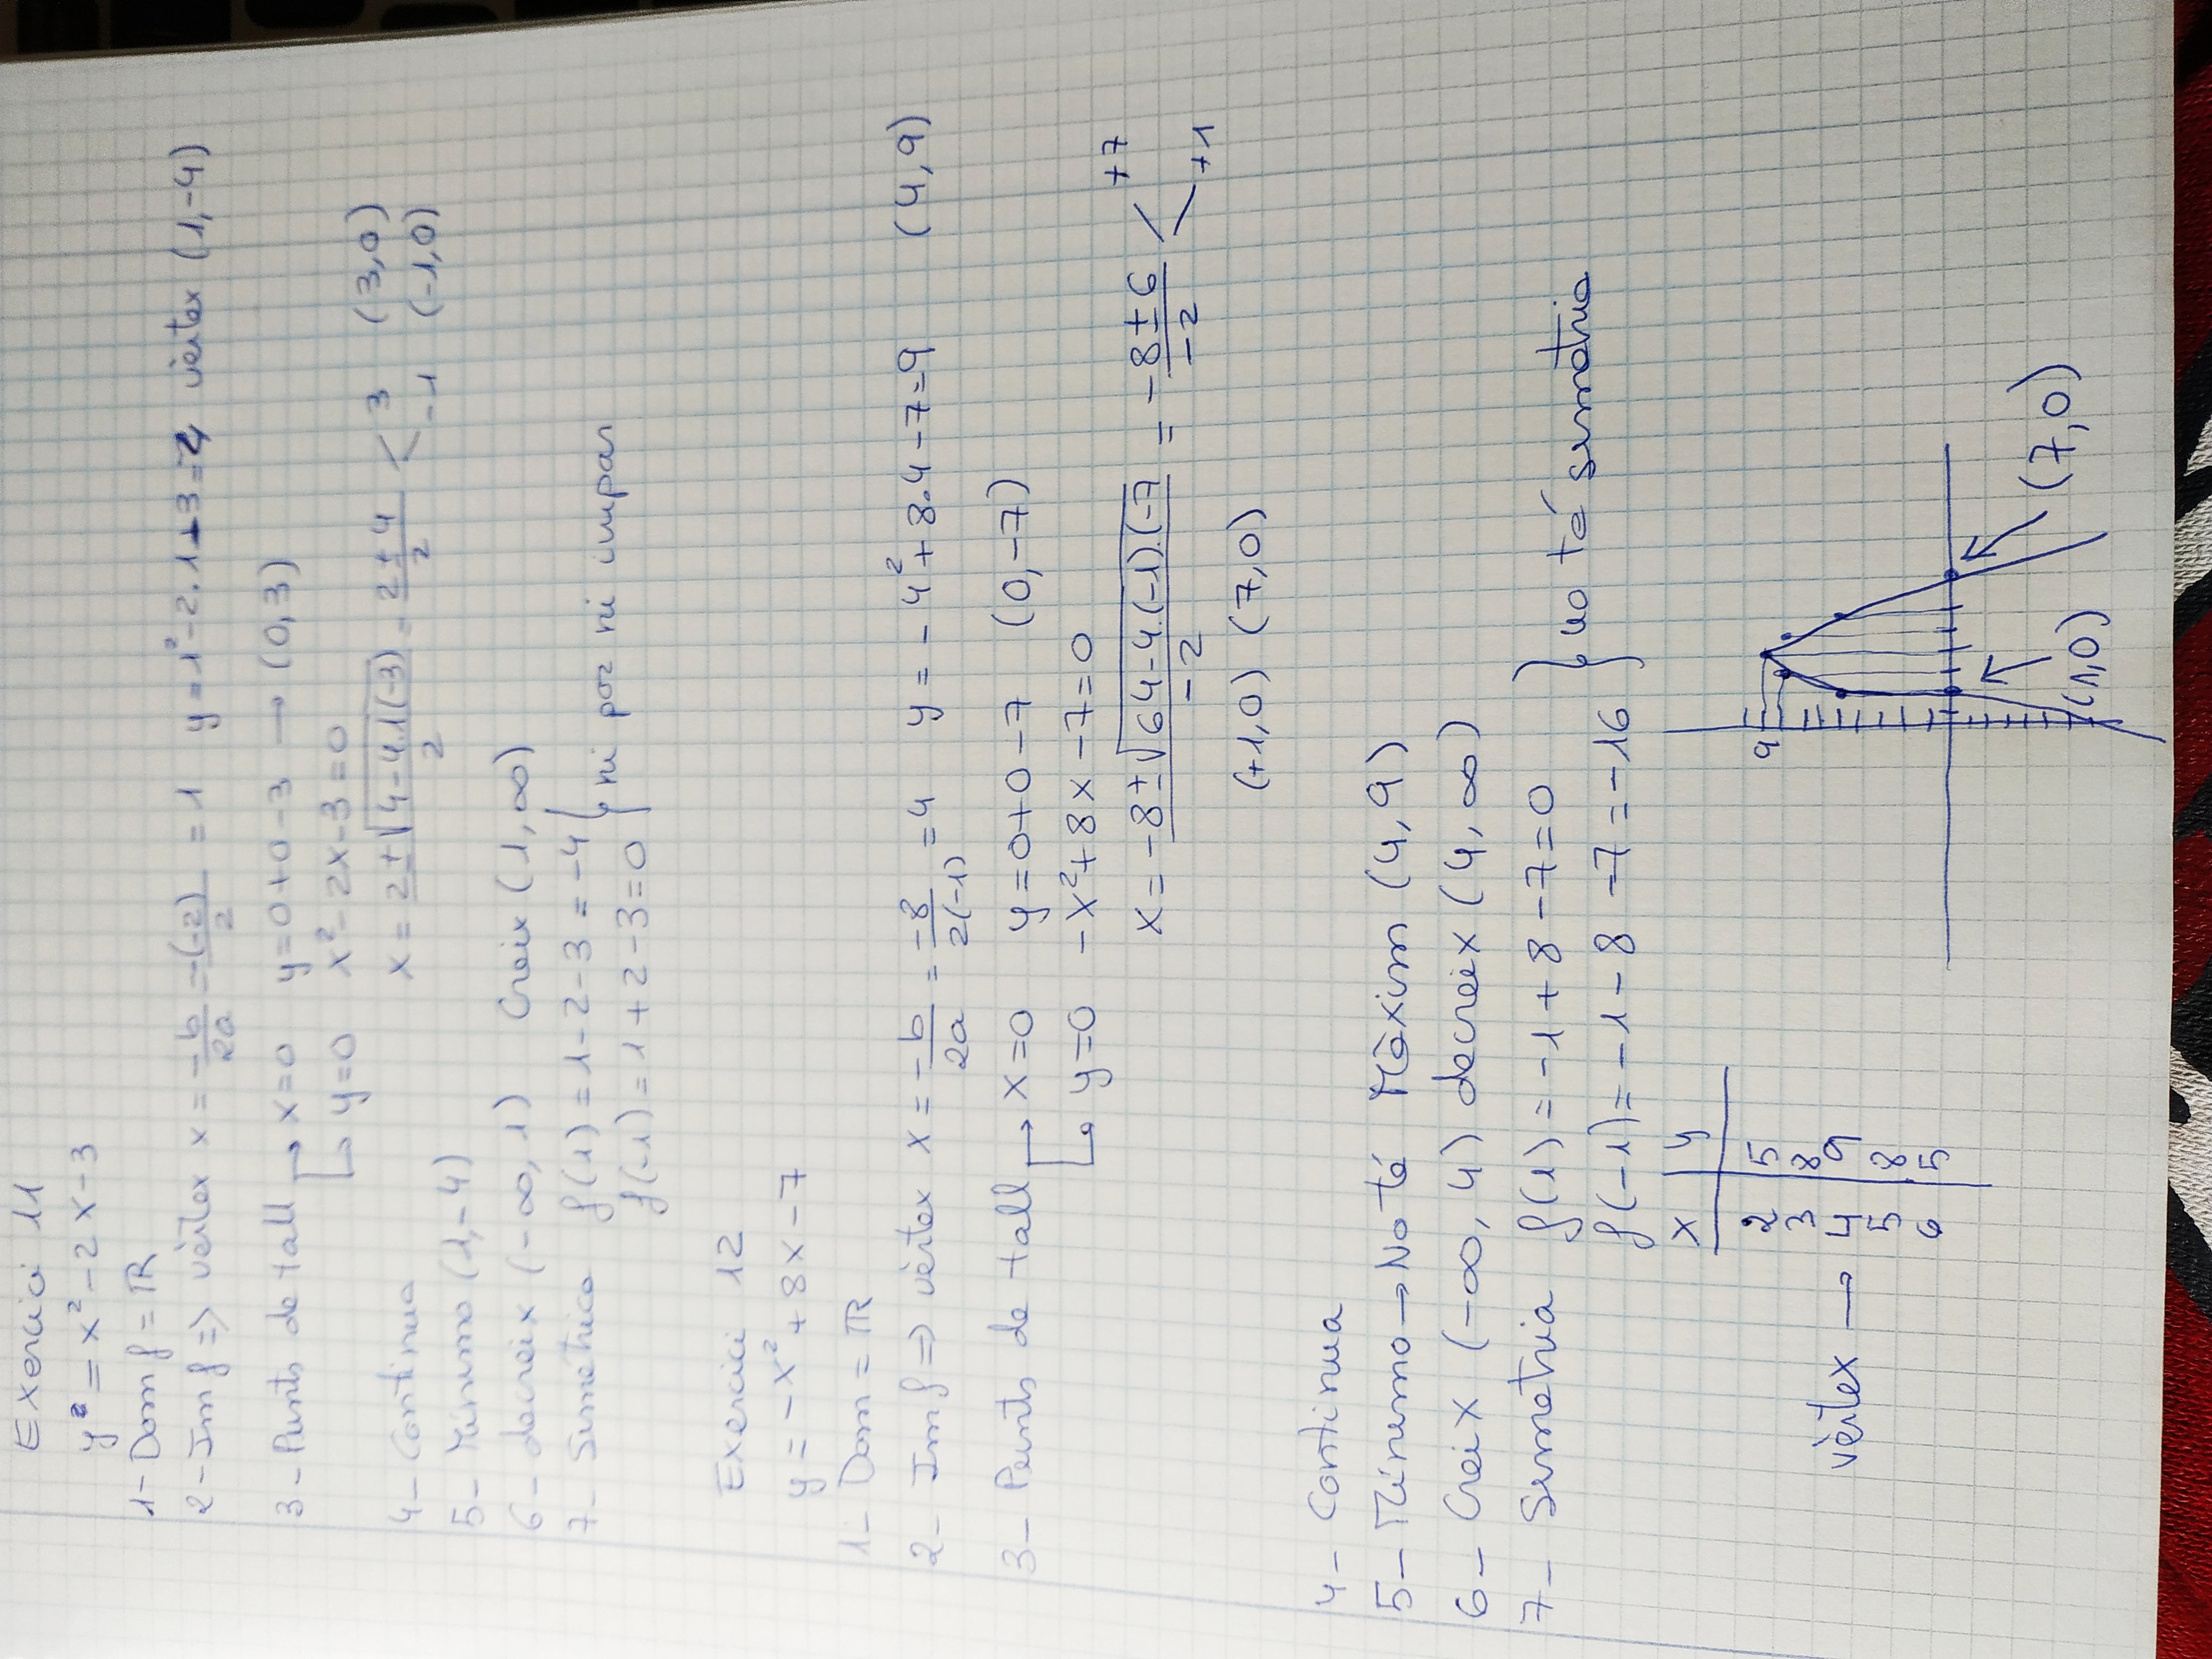 Exercici 11
y² = x² - 2x - 3
1- Dom f = ℝ
2- Im f ⇒ vèrtex x = -b/2a = -(-2)/2 = 1 y = 1² - 2.1 - 3 = -4 vèrtex (1,-4)
3- Punts de tall → x=0 y = 0+0-3 → (0,3)
↳ y=0 x² - 2x - 3 = 0
x = 2±√4-4.1(-3)/2 = 2±4/2 < 3 (3,0)
-1 (-1,0)
4- Continua
5- Mínimo (1,-4)
6- decreix (-∞, 1) Creix (1, ∞)
7- Simétrica f(1) = 1-2-3 = -4 } ni par ni impar
f(-1) = 1+2-3=0
Exercici 12
y = -x² + 8x - 7
1- Dom = ℝ
2- Im f ⇒ vèrtex x = -b/2a = -8/2(-1) = 4 y = -4² + 8.4 - 7 = 9 (4,9)
3- Punts de tall → x=0 y = 0+0-7 (0,-7)
↳ y=0 -x² + 8x - 7 = 0
x = -8±√64-4.(-1).(-7/-2 = -8±6/-2 < +7
+1
(+1,0) (7,0)
4- Continua
5- Mínimo → No té Màxim (4,9)
6- Creix (-∞, 4) decreix (4, ∞)
7- Simetria f(1) = -1+8-7=0 } no té simetria
f(-1) = -1-8-7=-16
x | y
2 | 5
3 | 8
vèrtex → 4 | 9
5 | 8
6 | 5
9
(1,0)
(7,0)